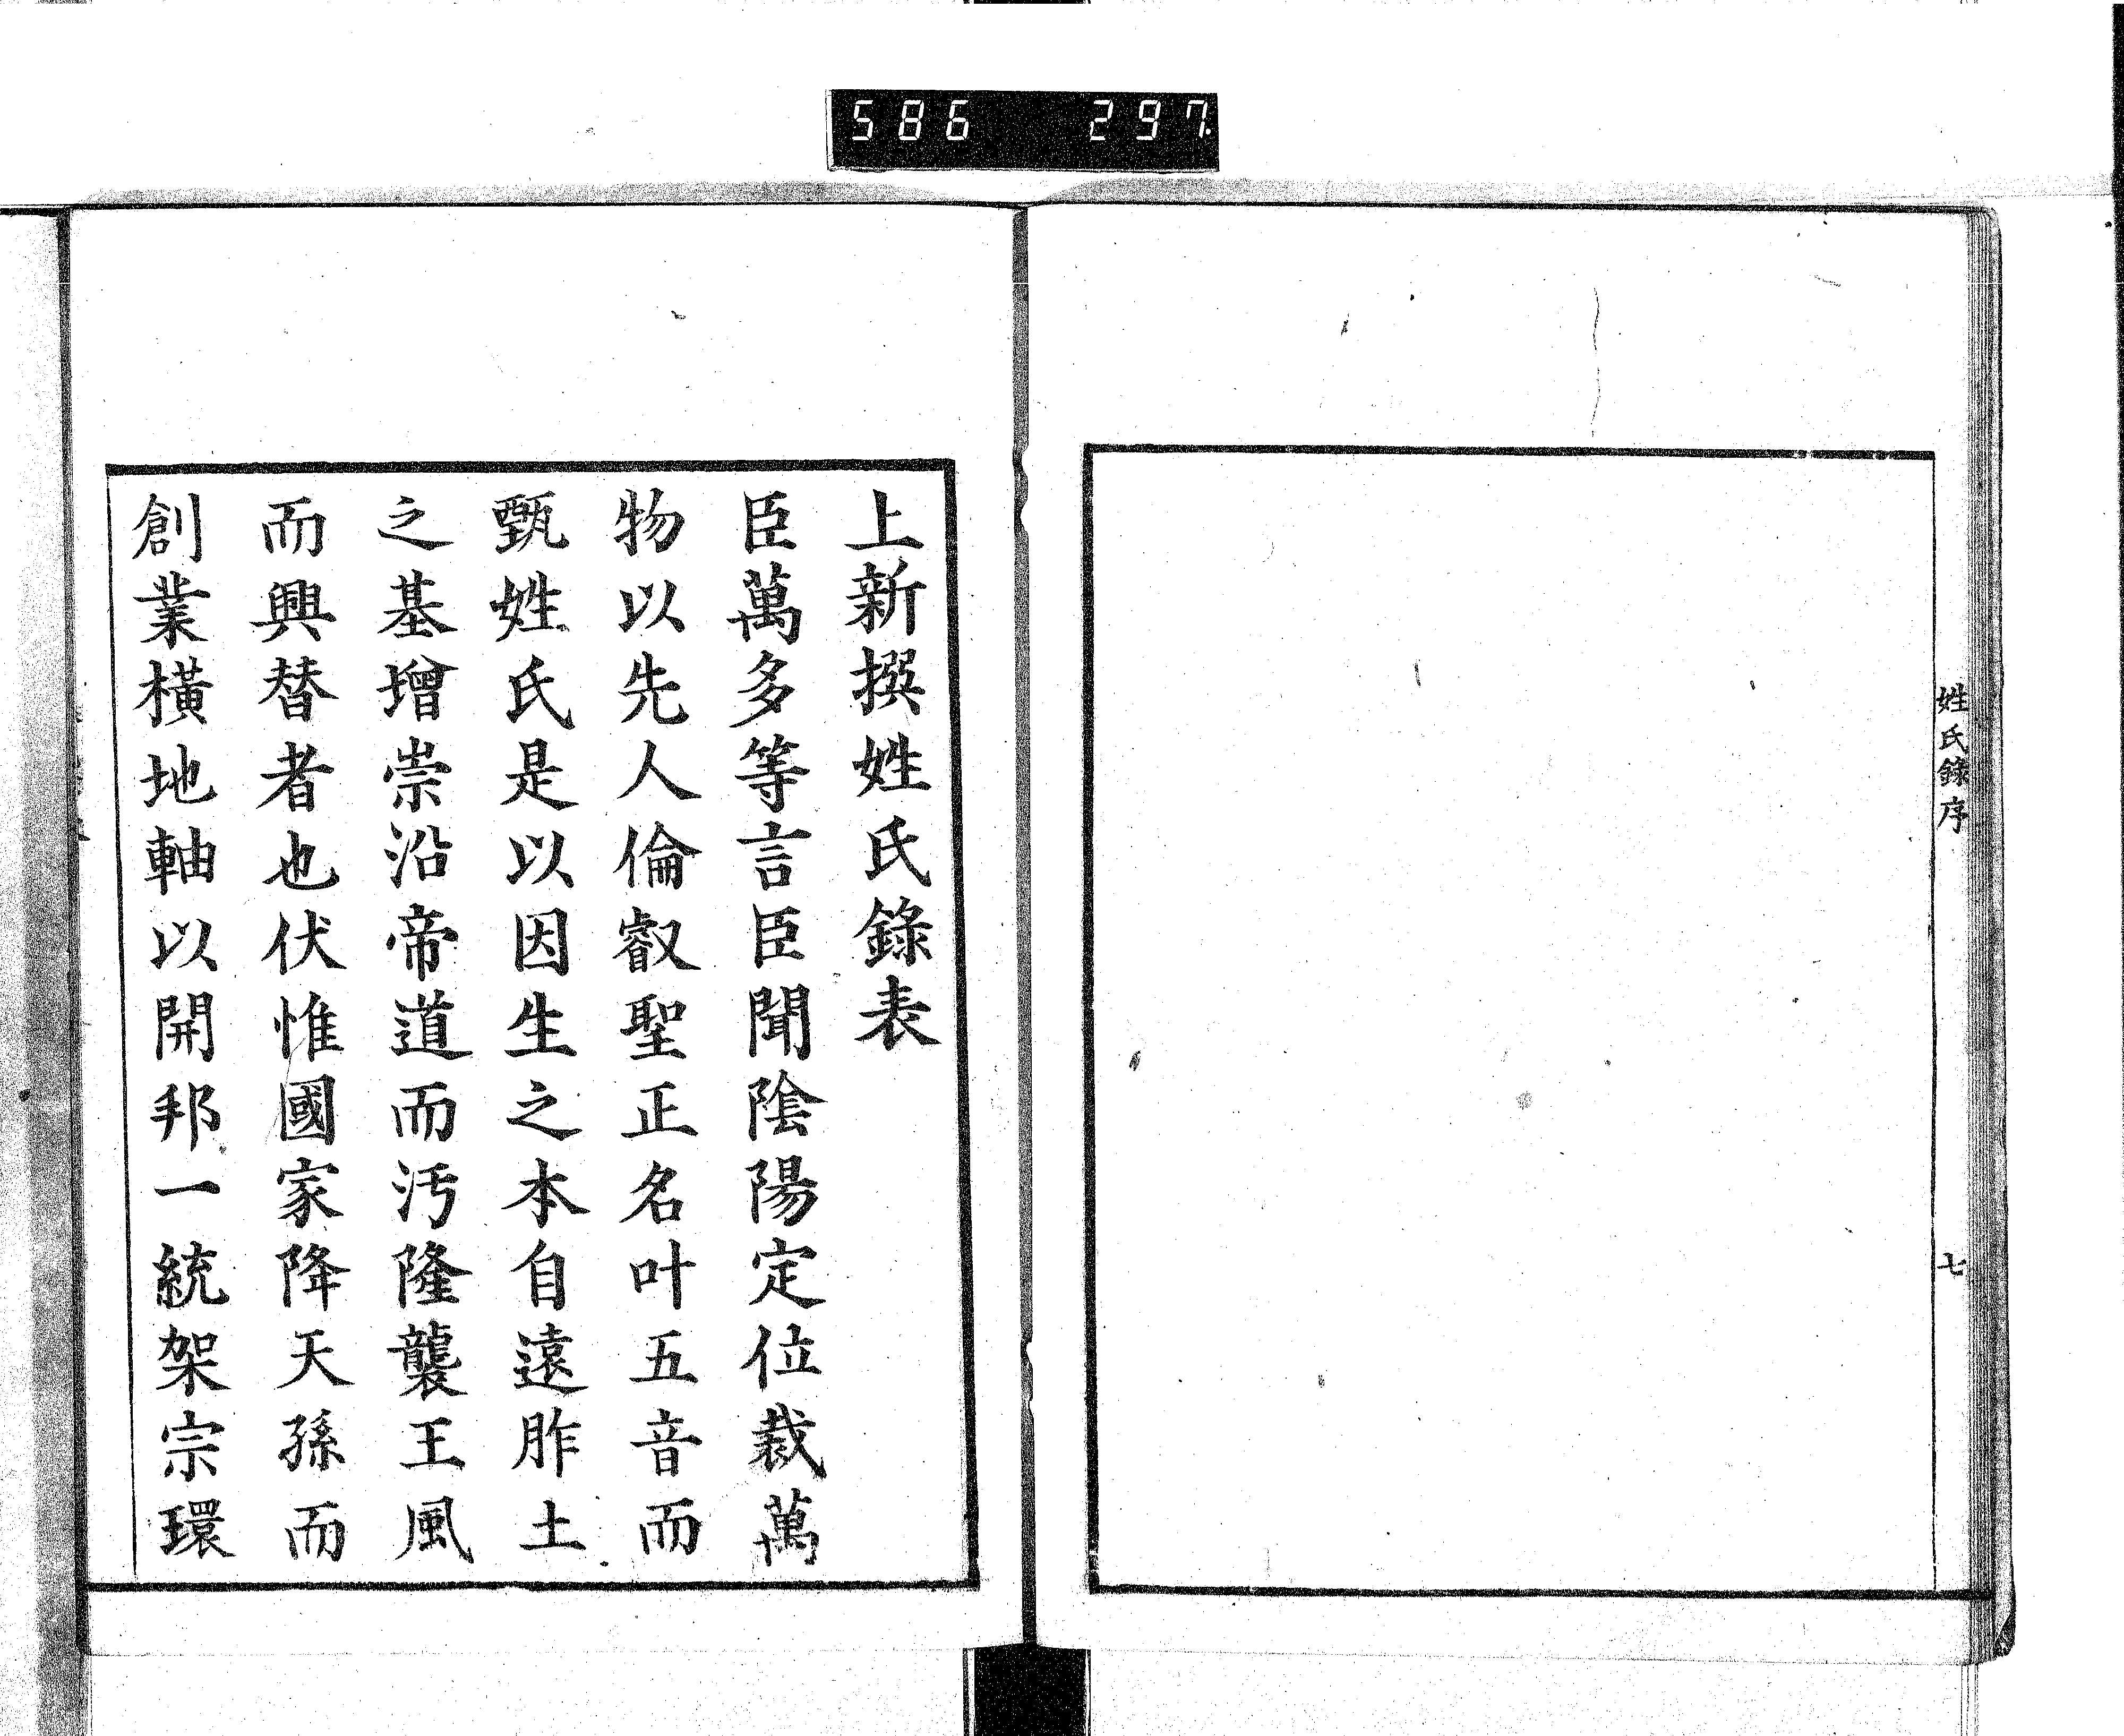 586 297
姓氏錄序
七
上新撰姓氏錄表
臣萬多等言臣聞陰陽定位裁萬
物以先人倫叡聖正名叶五音而
甄姓氏是以因生之本自遠胙土
之基增崇沿帝道而汚隆襲王風
而興替者也伏惟國家降天孫而
創業橫地軸以開邦一統架宗環